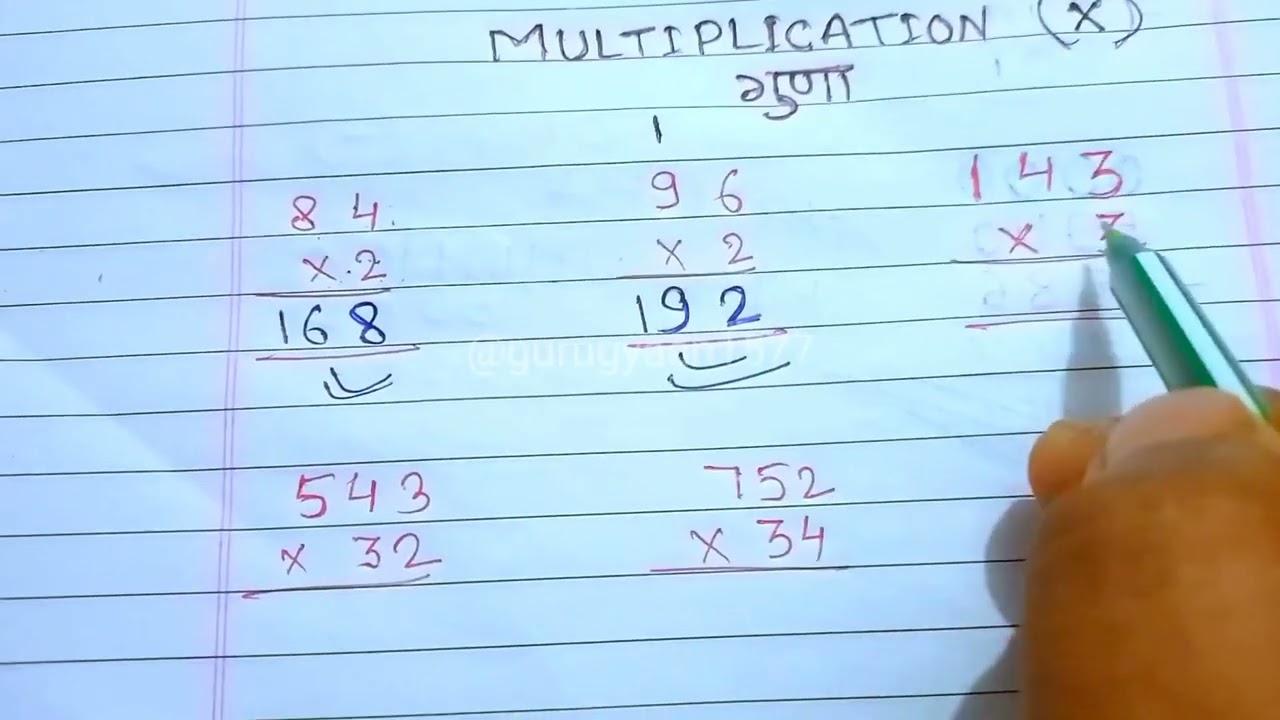 MULTIPLICATION (X)
गुणा
84
x 2
168
1
96
x 2
192
143
x
543
x 32
752
x 34